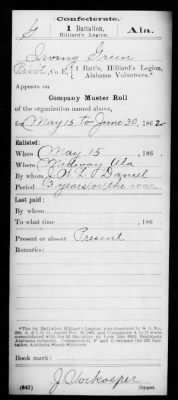 Confederate.
G 1 Battalion, Hilliard's Legion. Ala.
Irving Green
Privt, Co. F, 1 Batt'n, Hilliard's Legion, Alabama Volunteers.*
Appears on
Company Muster Roll
of the organization named above,
for May 15 to June 30, 1862.
Enlisted:
When May 15, 186 .
Where Midway Ala
By whom J. W. L. Daniel
Period 3 years or the war
Last paid:
By whom
To what time , 186 .
Present or absent Present
Remarks:
*The 1st Battalion, Hilliard's Legion, was
Book mark:
(642) Copyist.